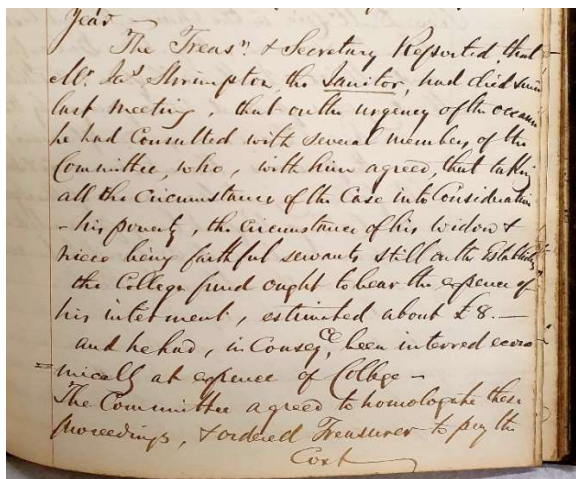 Year —
The Treasr. & Secretary Reported, that
Mr. Jas. Shrimpton, the Janitor, had died since
last meeting, that on the urgency of the occasion
he had Consulted with several members of the
Committee, who, with him agreed, that taking
all the Circumstances of the Case into Consideration
– his poverty, the Circumstance of his widow &
niece being faithful servants still on the Establisht
the College fund ought to bear the expence of
his interment, estimated about £8. —
and he had, in Conseqce, been interred econo
= mically at expence of College –
The Committee agreed to homologate these
proceedings, & ordered Treasurer to pay the
Cost